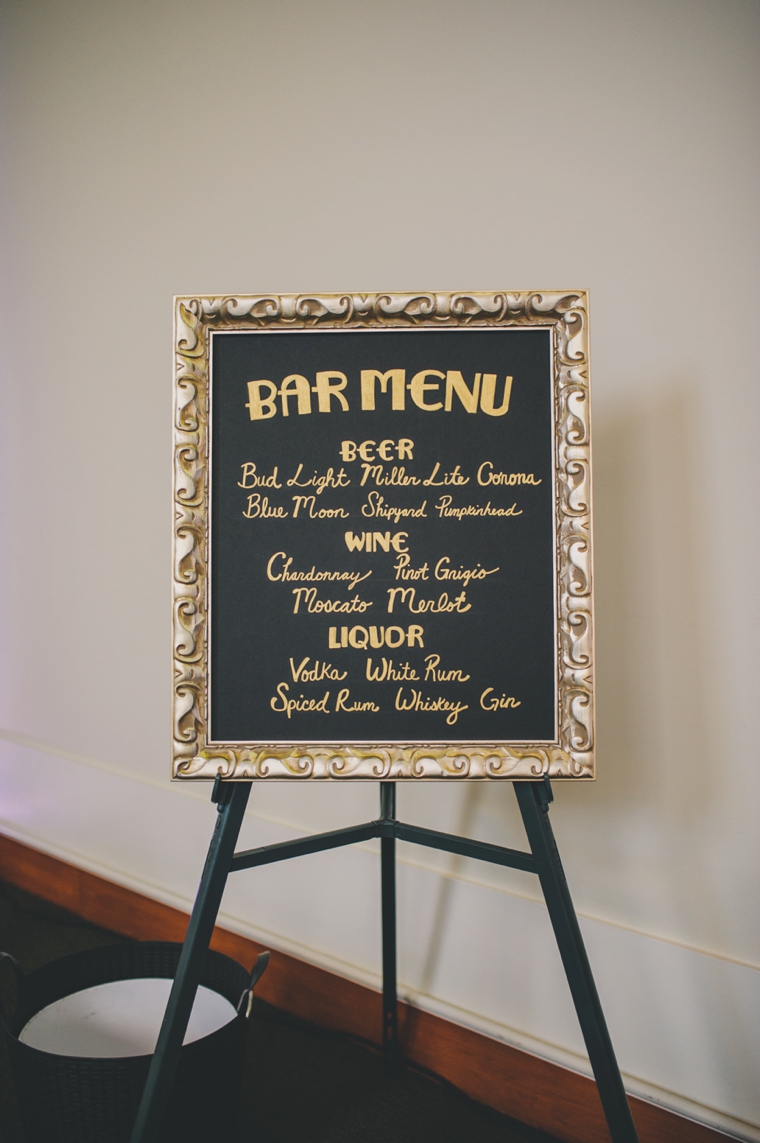 BAR MENU
BEER
Bud Light Miller Lite Corona
Blue Moon Shipyard Pumpkinhead
WINE
Chardonnay Pinot Grigio
Moscato Merlot
LIQUOR
Vodka White Rum
Spiced Rum Whiskey Gin